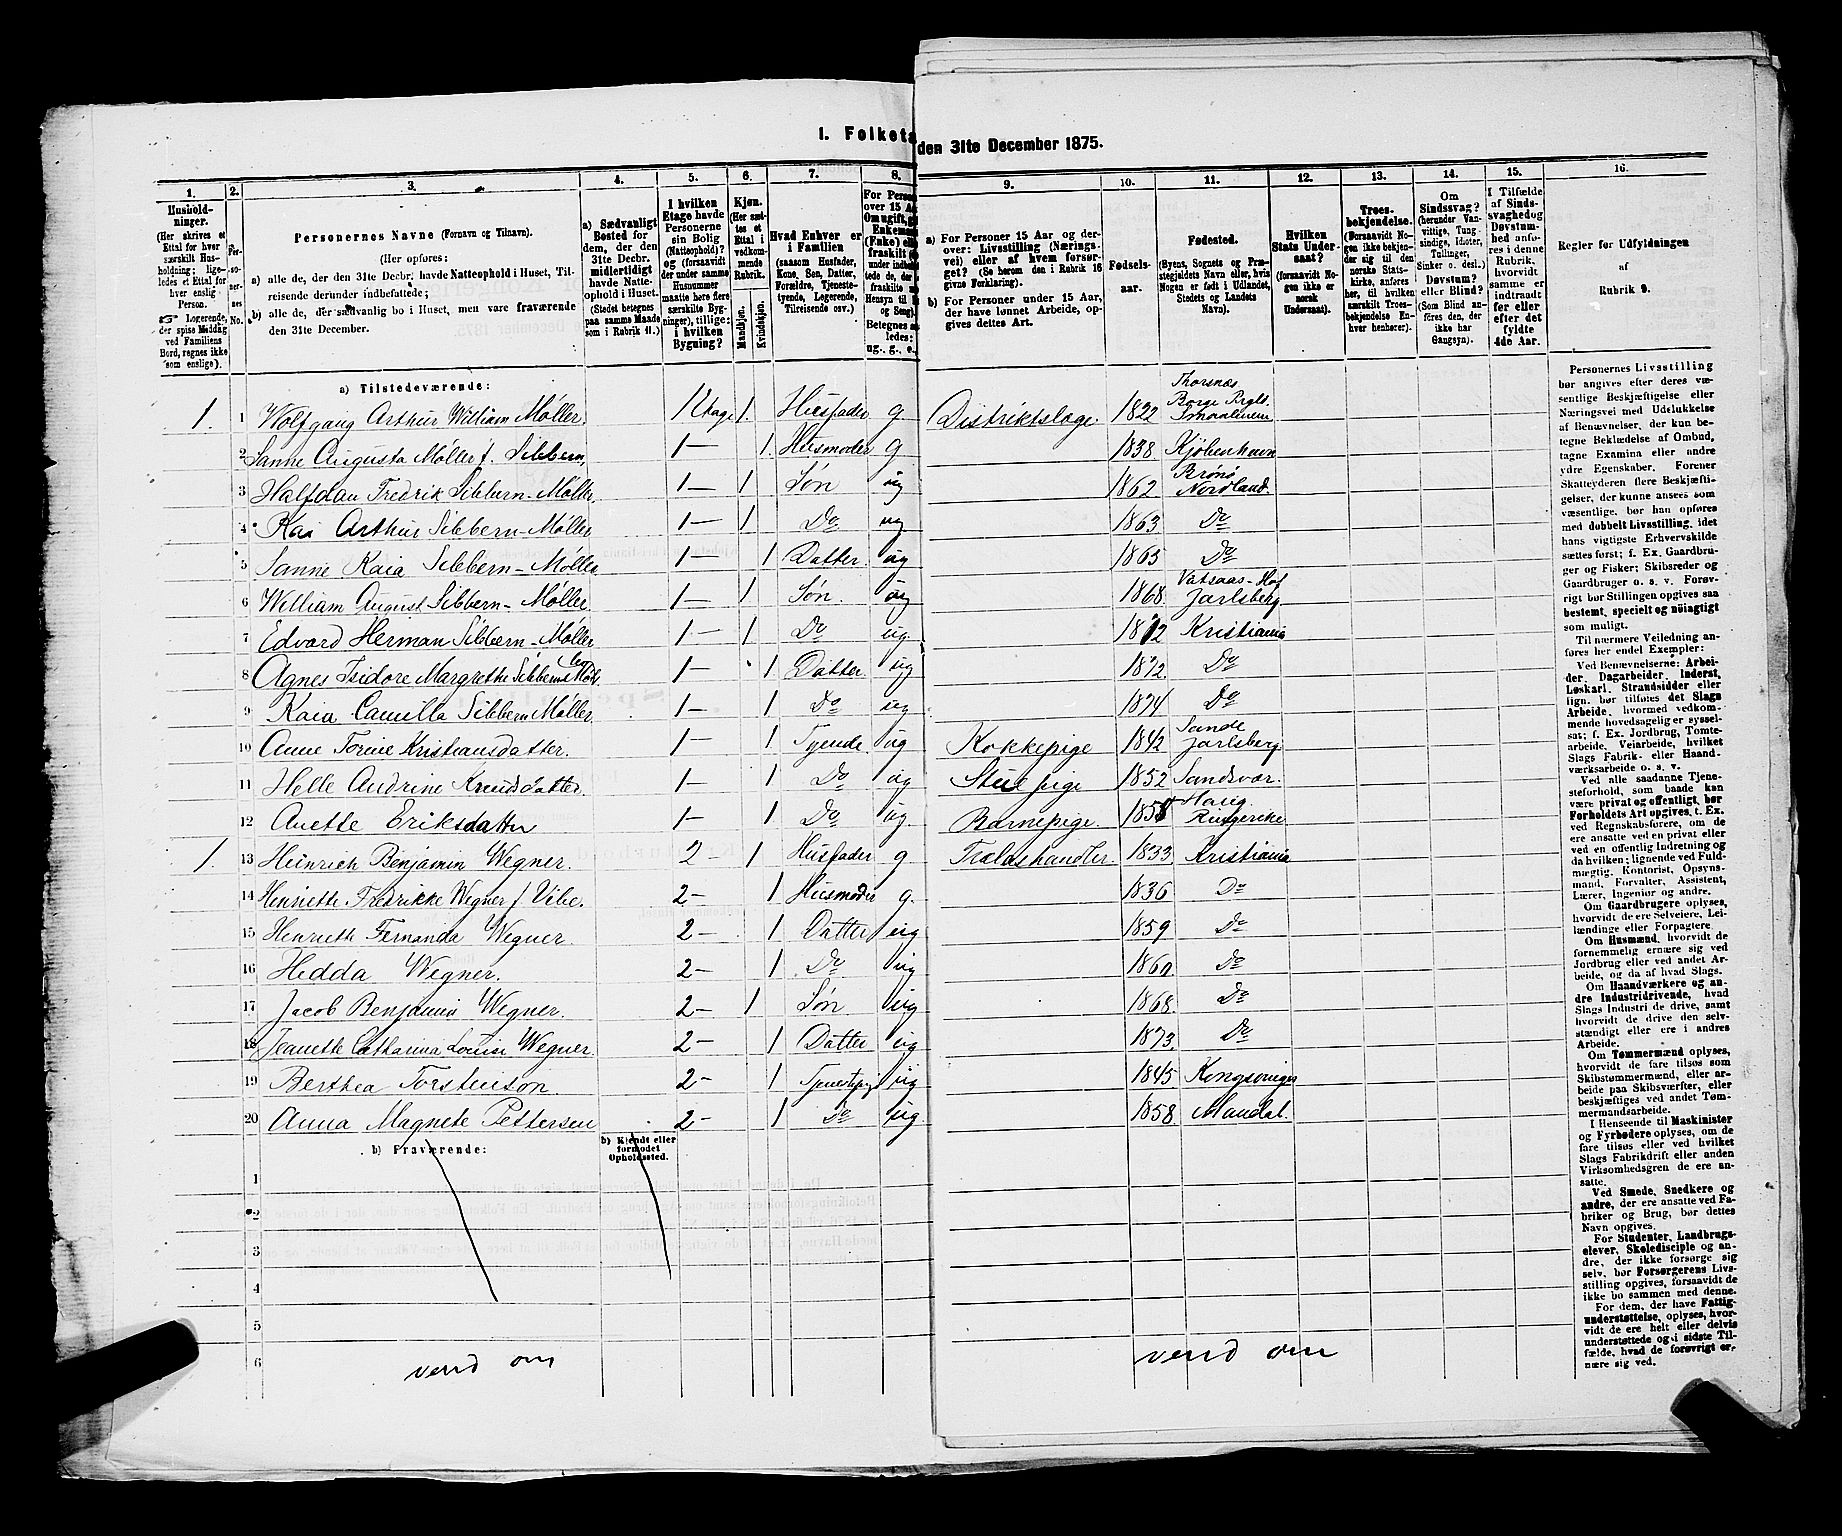 1. Folketæ
den 31te December 1875.
1. 2. 3. 4. 5. 6. 7. 8. 9. 10. 11. 12. 13. 14. 15. 16.
Hushold-
ninger.
(Her skrives et
Ettal for hver
særskilt Hus-
holdning; lige-
ledes et Ettal for
hver enslig
Person.
☞ Logerende,
der spise Middag
ved Familiens
Bord, regnes ikke
som enslige).
Per-
so-
ner-
nes
No.
Personernes Navne (Fornavn og Tilnavn).
(Her opføres:
a) alle de, der den 31te Decbr. havde Natteophold i Huset, Til-
reisende derunder indbefattede;
b) alle de, der sædvanlig bo i Huset, men vare fraværende
den 31te December.
a) Sædvanligt
Bosted for
dem, der den
31te Decbr.
midlertidigt
havde Natte-
ophold i Huset.
(Stedet betegnes
paa samme Maade
som i Rubrik 11.)
I hvilken
Etage havde
Personerne
sin Bolig
(Natteophold)?
og (forsaavidt
der under samme
Husnummer
maatte høre flere
særskilte Byg-
ninger), tillige:
i hvilken
Bygning?
Kjøn.
(Her sæt-
tes et
Ettal i
vedkom-
mende
Rubrik.
Mandkjøn.
Kvindekjøn.
Hvad Enhver er
i Familien
(saasom Husfader,
Kone, Søn, Datter,
Forældre, Tjeneste-
tyende, Logerende,
Tilreisende osv.)
For Person
over 15 Aa
Om ugift, g
Enkemen
(Enke) elle
fraskilt
under indb
tede de, der
fraskilte m
Hensyn til B
og Seng).
Betegnes s
ledes:
ug., g., e.,
a) For Personer 15 Aar og der-
over: Livsstilling (Nærings-
vei) eller af hvem forsør-
get? (Se herom den i Rubrik 16
givne Forklaring).
b) For Personer under 15 Aar,
der have lønnet Arbeide, op-
gives dettes Art.
Fødsels-
aar.
Fødested.
(Byens, Sognets og Præ-
stegjeldets Navn eller, hvis
Nogen er født i Udlandet,
Stedets og Landets
Navn).
Hvilken
Stats Under-
saat?
(forsaavidt No-
gen ikke er
norsk
Undersaat).
Troes-
bekjendelse.
(Forsaavidt No-
gen ikke bekjen-
der sig til den
norske Stats-
kirke, anføres
her, til hvilken
særskilt Troes-
bekjendelse En-
hver henhører).
Om
Sindssvag?
(herunder Van-
vittige, Tung-
sindige, Idioter,
Tullinger,
Sinker o. desl.)
Døvstum?
eller Blind?
(Som Blind an-
føres den, der
ikke har
Gangsyn).
I Tilfælde
af Sinds-
svaghed og
Døvstum-
hed anfø-
res i denne
Rubrik,
hvorvidt
samme er
indtraadt
før eller
efter det
fyldte
4de Aar.
Regler for Udfyldningen
af
Rubrik 9.
a) Tilstedeværende:
1. 1 Wolfgang Arthur William Møller. 1 Etage 1. Husfader g Distriktslæge. 1822 Thorsnæs Borge Prgld. Smaalenene
2 Sanne Augusta Møller f. Sibbern, 1— 1. Husmoder g. 1838. Kjøbenhavn
3 Halfdan Fredrik Sibbern-Møller. 1— 1 Søn ug 1862 Brønø Nordland.
4 Kai Arthur Sibbern-Møller 1— 1 Do ug 1863 Do
5 Sanne Kaia Sibbern-Møller 1— 1 Datter ug 1865 Do
6 William August Sibbern-Møller 1— 1 Søn. ug 1868. Jarlsberg
7 Edvard Herman Sibbern-Møller 1— 1 Do ug Kristiania
8 Agnes Isidore Margrethe Sibbern 1— 1 Datter ug 1872. Do
9 Kaia Camilla Sibbern Møller. 1— 1 Do ug 1874 Do
10 Anne Torine Kristiansdatter. 1— 1 Tyende ug Kokkepige 1842 Sande Jarlsberg
11 Helle Andrine Knudsdatter. 1— 1 Do ug Stuepige 1852 Sandsvær.
12 Anette Eriksdatter 1— 1 Do ug. Barnepige. Ringerike
1. 13 Heinrich Benjamin Wegner. 2— 1 Husfader g Trælasthandler. 1833 Kristiania
14 Henriette Fredrikke Wegner f Vibe. 2— 1 Husmoder g. 1836 Do
15 Henriette Fernanda Wegner. 2— 1 Datter ug 1859 Do
16 Hedda Wegner. 2— 1 Do ug Do
17 Jacob Benjamin Wegner. 2— 1 Søn ug 1868. Do
18 Jeanette Catharina Louise Wegner. 2— 1 Datter ug 1873. Do
19 Berthea Torstenson 2— 1 ug 1845 Kongsvinger
20 Anna Magnete Pettersen 2— 1 Do ug. 1858. Mandal.
b) Fraværende:
b) Kjendt eller
formodet
Opholdssted.
1
2
3
4
5
6
vend om
vend om
Personernes Livsstilling
bør angives efter deres væ-
sentlige Beskjæftigelse eller
Næringsvei med Udelukkelse
af Benævnelser, der kun be-
tegne Beklædelse af Ombud,
tagne Examina eller andre
ydre Egenskaber. Forener
Skatteyderen flere Beskjæfti-
gelser, der kunne ansees som
væsentlige, bør han opføres
med dobbelt Livsstilling, idet
hans vigtigste Erhvervskilde
sættes først; f. Ex. Gaardbru-
ger og Fisker; Skibsreder og
Gaardbruger o. s. v. Forøv-
rigt bør Stillingen opgives saa
bestemt, specielt og nøiagtigt
som muligt.
Til nærmere Veiledning an-
føres her endel Exempler:
Ved Benævnelserne: Arbei-
der, Dagarbeider, Inderst,
Løskarl, Strandsidder eller
lign. bør tilføies det Slags
Arbeide, hvormed vedkom-
mende hovedsagelig er syssel-
sat; f. Ex. Jordbrug, Tomte-
arbeide, Veiarbeide, hvilket
Slags Fabrik- eller Haand-
værksarbeide o. s. v.
Ved alle saadanne Tjene-
steforhold, som baade kan
være privat og offentligt, bør
Forholdets Art opgives, t. Ex.
ved Regnskabsførere, om de
ere ansatte ved en privat eller
ved en offentlig Indretning og
da hvilken; lignende ved Fuld-
mægtig, Kontorist, Opsyns-
mand, Forvalter, Assistent,
Lærer, Ingeniør og andre.
Om Gaardbrugere oplyses,
hvorvidt de ere Selveiere, Lei-
lændinge eller Forpagtere.
Om Husmænd, hvorvidt de
fornemmelig ernære sig ved
Jordbrug eller ved andet Ar-
beide, og da af hvad Slags.
Om Haandværkere og an-
dre Industridrivende, hvad
Slags Industri de drive, samt
hvorvidt de drive den selv-
stændigt eller ere i andres
Arbeide.
Om Tømmermænd oplyses,
hvorvidt de fare tilsøs som
Skibstømmermænd, eller ar-
beide paa Skibsværfter, eller
beskjæftiges ved andet Tøm-
mermandsarbeide.
I Henseende til Maskinister
og Fyrbødere oplyses, om de
fare tilsøs eller ved hvilket
Slags Fabrikdrift eller anden
Virksomhedsgren de ere an-
satte.
Ved Smede, Snedkere og
andre, der ere ansatte ved Fa-
briker og Brug, bør dettes
Navn opgives.
For Studenter, Landbrugs-
elever, Skoledisciple og an-
dre, der ikke forsørge sig
selv, bør Forsørgerens Livs-
stilling opgives, forsaavidt de
ikke bo sammen med denne.
For dem, der have Fattig-
understøttelse, oplyses, hvor-
vidt de ere helt eller delvis
understøttede og i sidste Til-
fælde, hvad de forøvrigt er-
nære sig ved.